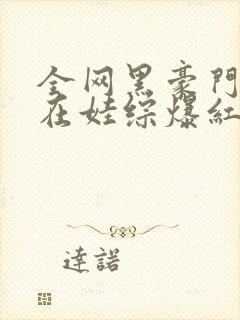 全网黑豪門
在娃综爆紅
達諾